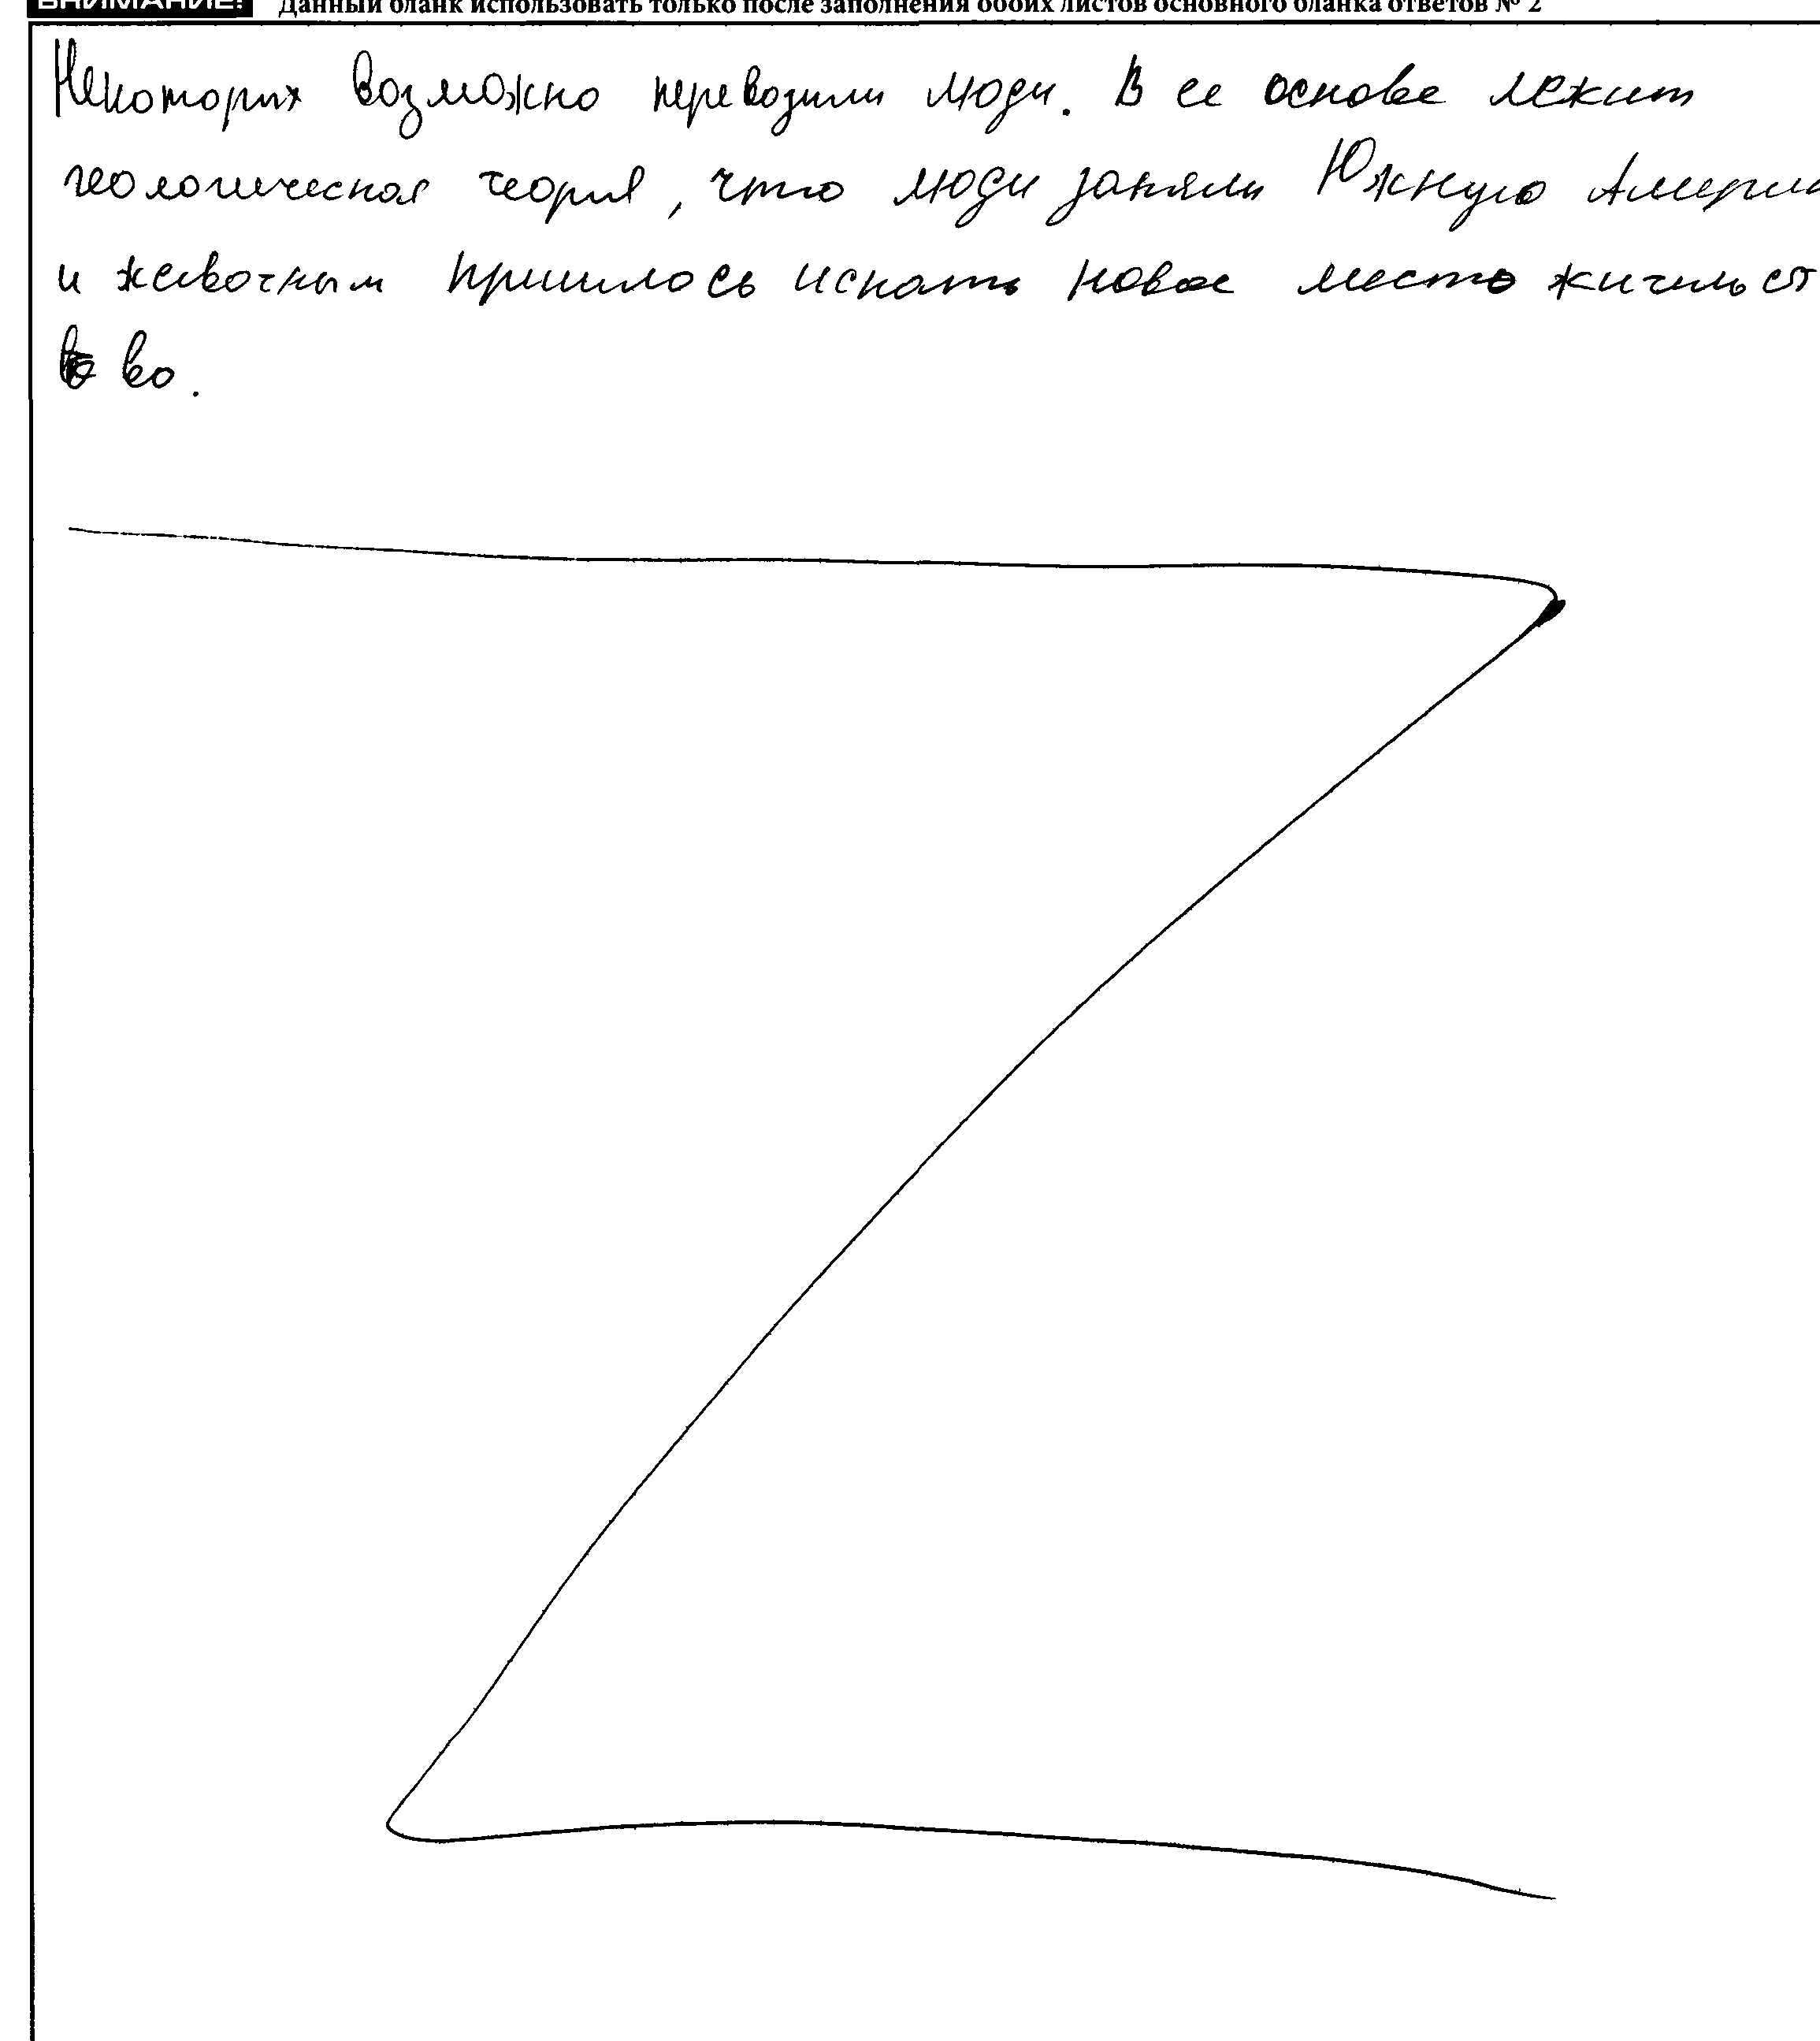 ВНИМАНИЕ! Данный бланк использовать только после заполнения обоих листов основного бланка ответов № 2
Некоторых возможно перевозили люди. В ее основе лежит
геологическая теория, что люди заняли Южную Америк
и животным пришлось искать новое место жительст
во.